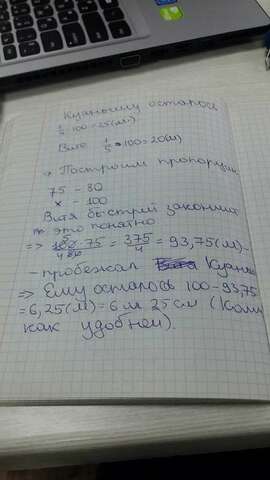 Куаныгу осталось
1/4 · 100 = 25 (м)
Вите 1/5 · 100 = 20 (м)
⇒ Построим пропорцию
75 – 80
x – 100
Витя быстрей закончит
то это понятно
⇒ 100/80 · 75 = 375/4 = 93,75 (м) –
– пробежал Куаныг
⇒ Ему осталось 100 – 93,75
= 6,25 (м) = 6 м 25 см (Кому
как удобней).